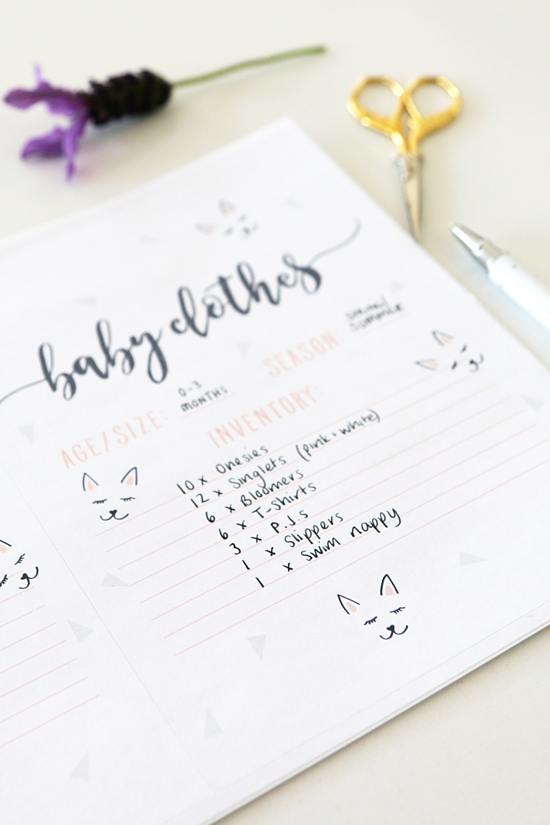 baby clothes
AGE/SIZE: 0-3 MONTHS
SEASON SPRING/ SUMMER
INVENTORY:
10 x Onesies
12 x Singlets (pink + white)
6 x Bloomers
6 x T-Shirts
3 x P.J.s
1 x Slippers
1 x Swim nappy